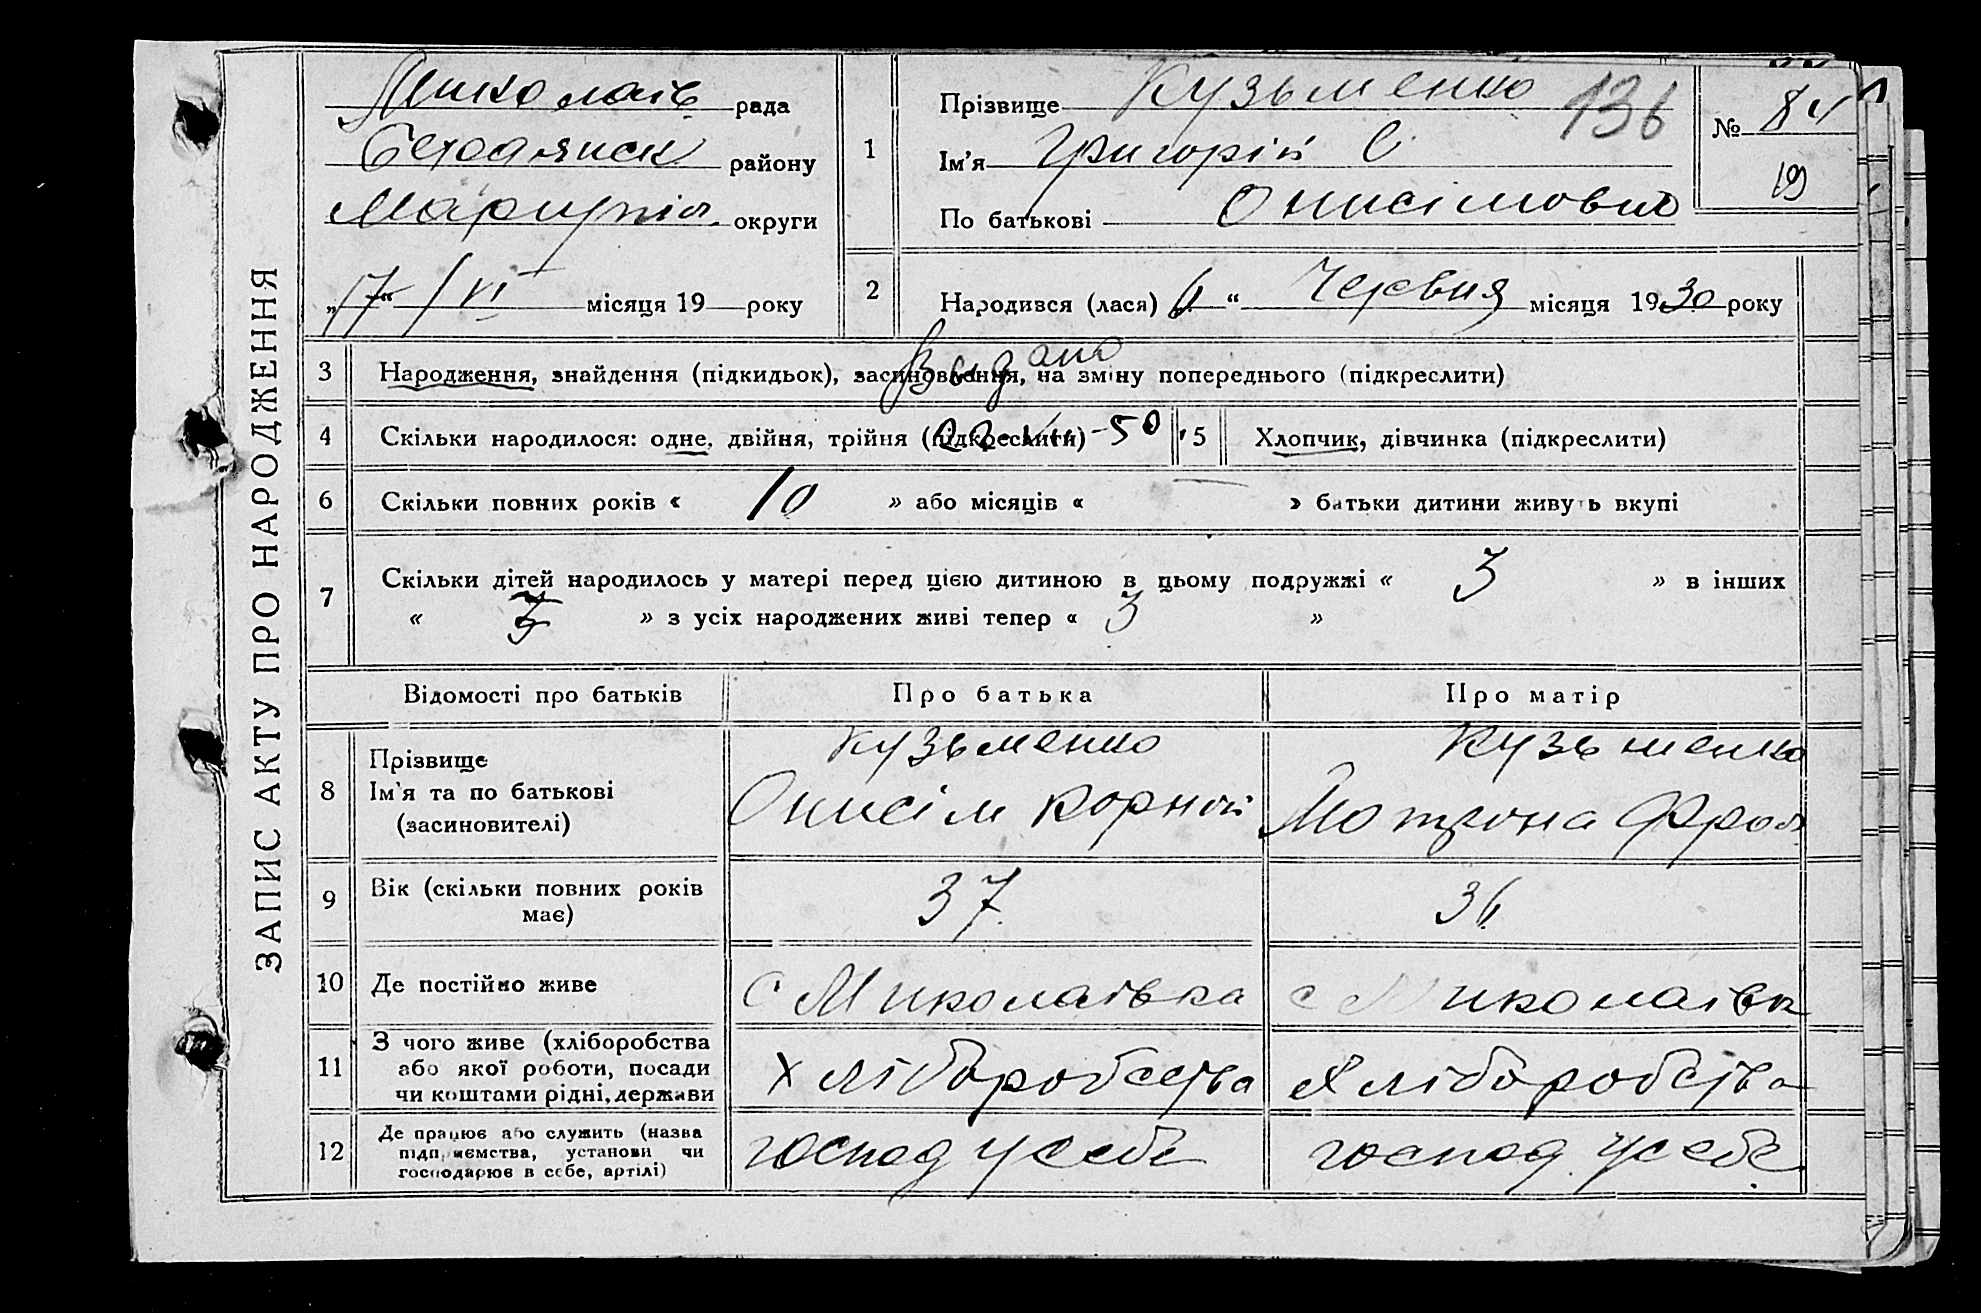 ЗАПИС АКТУ ПРО НАРОДЖЕННЯ
Миколаїв рада
Бердянськ району
Маріупіл. округи
„17“ / VI місяця 19 року
1
Прізвище Кузьменко
136
Ім'я Григорій О
По батькові Онисімович
№ 84
19
2
Народився (лася) 6 “ Червня місяця 1930 року
Видано
3 Народження, знайдення (підкидьок), засиновлення, на зміну попереднього (підкреслити)
22-VII-50
4 Скільки народилося: одне, двійня, трійня (підкреслити)
5 Хлопчик, дівчинка (підкреслити)
6 Скільки повних років « 10 » або місяців « » батьки дитини живуть вкупі
7 Скільки дітей народилось у матері перед цією дитиною в цьому подружжі « 3 » в інших
« 3 » з усіх народжених живі тепер « 3 »
Відомості про батьків Про батька Про матір
8 Прізвище
Ім'я та по батькові
(засиновителі)
Кузьменко
Онисім Корній
Кузьменко
Мотрона Фрол
9 Вік (скільки повних років
має)
37
36
10 Де постійно живе
с Миколаївка
с Миколаївк
11 З чого живе (хліборобства
або якої роботи, посади
чи коштами рідні, держави
Хліборобства
Хліборобства
12 Де працює або служить (назва
підприємства, установи чи
господарює в себе, артілі)
господ у себе
господ. у себе